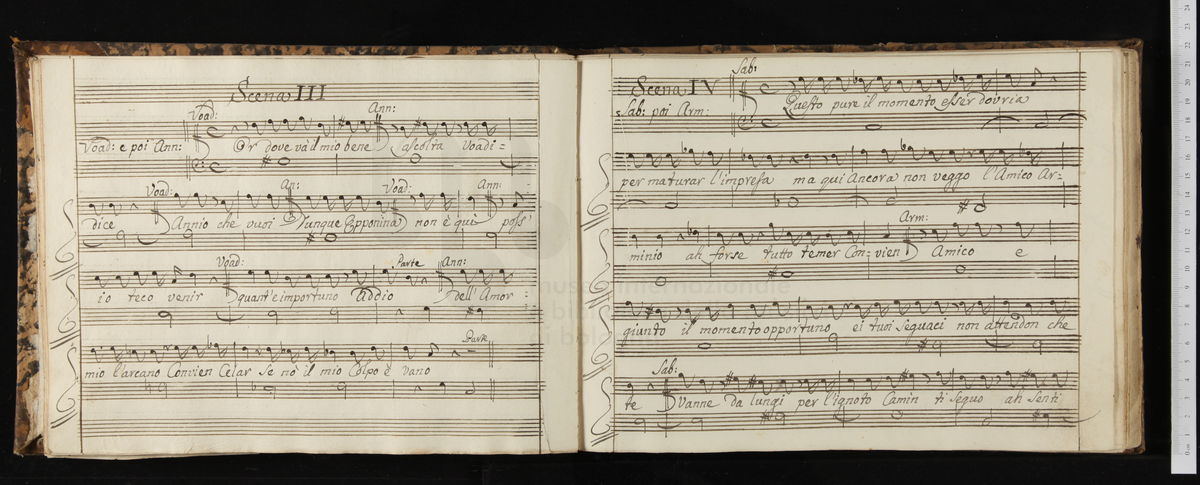 Scena III
Voad: Ann:
Voad: e poi Ann: Or dove và il mio bene ascolta Voadi=
Voad: An: Voad: Ann:
dice Annio che vuoi Dunque Epponina non è quì poss'
Voad: Parte Ann:
io teco venir quant'è importuno Addio dell'Amor
Parte
mio l'arcano Convien Celar se nò il mio Colpo è vano
Sab:
Scena IV
Sab: poi Arm: Questo pure il momento esser dovria
per maturar l'impresa ma quì Ancora non veggo l'Amico Ar=
Arm:
minio ah forse tutto temer Convien Amico e
giunto il momento opportuno ei tuoi seguaci non attendon che
Sab:
te Vanne da lungi per l'ignoto Camin ti sequo ah senti
museo internazionale
e biblioteca
di bologna